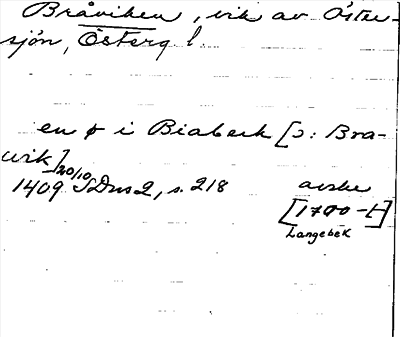 Bråviken, vik av Öster-
sjön, Österg l.
en ø i Biabeck [ɔ: Bra-
wik]
1409 20/10 SDns 2, s. 218 avskr
[1700-t]
Langebek